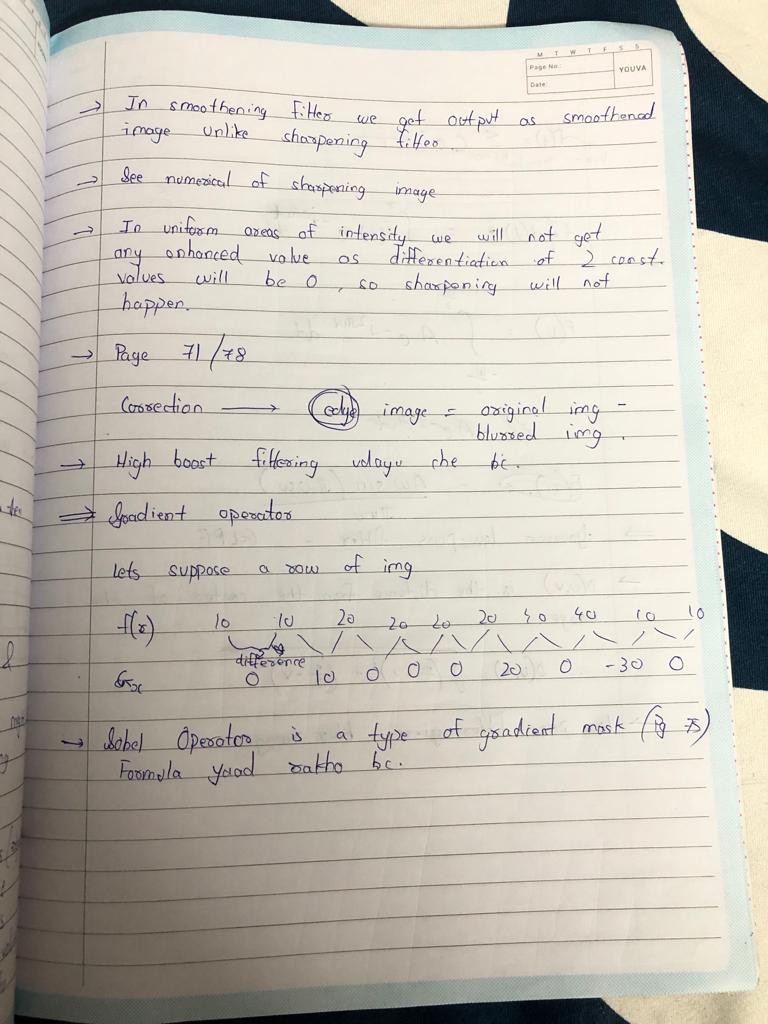 M T W T F S S
Page No.:
YOUVA
Date:
→ In smoothening filter we get output as smoothened
image unlike sharpening filter.
→ See numerical of sharpening image
→ In uniform areas of intensity we will not get
any enhanced value as differentiation of 2 const.
values will be 0, so sharpening will not
happen.
→ Page 71/78
Correction → edge image = original img -
blurred img.
→ High boost filtering vdayu che bc.
⇒ Gradient operator
Lets suppose a row of img
f(x) 10 10 20 20 20 20 40 40 10 10
difference
Gx 0 10 0 0 0 20 0 -30 0
→ Sobel Operator is a type of gradient mask (Pg 75)
Formula yaad rakho bc.